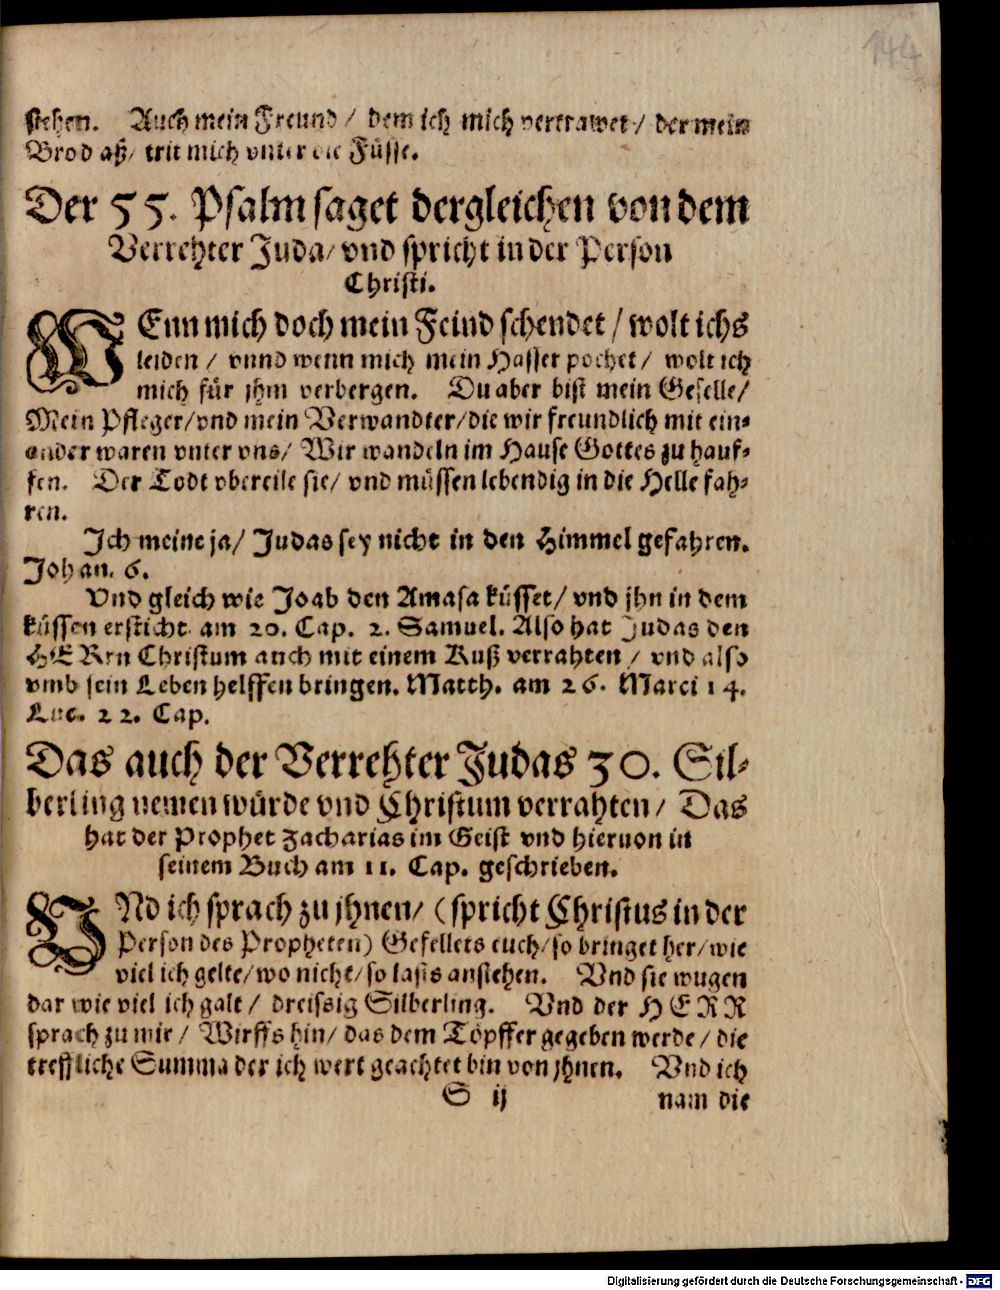 144
stehen. Auch mein Freund / dem ich mich vertrawet / der mein
Brod aß / trit mich vnter die Füsse.
Der 55. Psalm saget dergleichen von dem
Verrehter Juda / vnd spricht in der Person
Christi.
WEnn mich doch mein Feind schendet / wolt ichs
leiden / vnnd wenn mich mein Hasser pochet / wolt ich
mich für jhm verbergen. Du aber bist mein Geselle /
Mein Pfleger / vnd mein Verwandter / die wir freundlich mit ein-
ander waren vnter vns / Wir wandeln im Hause Gottes zu hauf-
fen. Der Todt vbereile sie / vnd müssen lebendig in die Helle fah-
ren.
Ich meine ja / Judas sey nicht in den Himmel gefahren.
Johan. 6.
Vnd gleich wie Joab den Amasa küsset / vnd jhn in dem
küssen ersticht am 20. Cap. 2. Samuel. Also hat Judas den
HERrn Christum auch mit einem Kuß verrahten / vnd also
vmb sein Leben helffen bringen. Matth. am 26. Marci 14.
Luc. 22. Cap.
Das auch der Verrehter Judas 30. Sil-
berling nemen würde vnd Christum verrahten / Das
hat der Prophet Zacharias im Geist vnd hieruon in
seinem Buch am 11. Cap. geschrieben.
VNd ich sprach zu jhnen / (spricht Christus in der
Person des Propheten) Gefellets euch / so bringet her / wie
viel ich gelte / wo nicht / so lasts anstehen. Vnd sie wugen
dar wie viel ich galt / dreissig Silberling. Vnd der HERR
sprach zu mir / Wirffs hin / das dem Töpffer gegeben werde / die
treffliche Summa der ich wert geachtet bin von jhnen. Vnd ich
S ij nam die
Digitalisierung gefördert durch die Deutsche Forschungsgemeinschaft - DFG